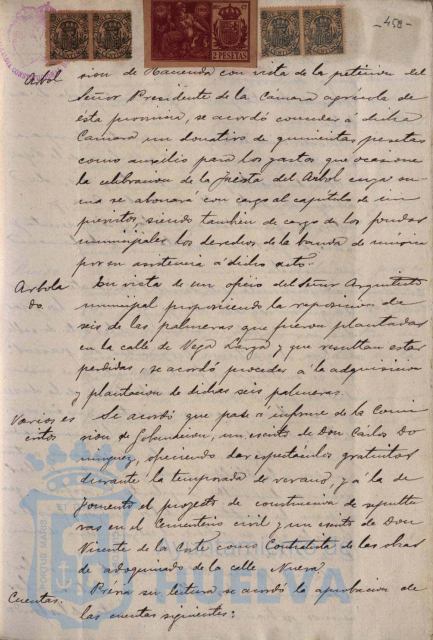 -458-
2 PESETAS
Arbol sion de Hacienda con vista de la peticion del
Señor Presidente de la Camara agricola de
ésta provincia, se acordó conceder á dicha
Camara un donativo de quinientas pesetas
como auxilio para los gastos que ocasione
la celebracion de la fiesta del Arbol cuya su-
ma se abonará con cargo al capitulo de im
previstos, siendo tambien de cargo de los fondos
municipales los derechos de la banda de musica
por su asistencia á dicho acto.
Arbola En vista de un oficio del Señor Arquitecto
do. municipal proponiendo la reposicion de
seis de las palmeras que fueron plantadas
en la calle de Vega Larga y que resultan estar
perdidas, se acordó proceder á la adquisicion
y plantacion de dichas seis palmeras.
Varios es Se acordó que pase á informe de la Comi
critos sion de Gobernacion, un escrito de Don Carlos Do
minguez, ofreciendo dar espectaculos gratuitos
durante la temporada de verano, y á la de
Fomento el proyecto de construccion de sepultu
ras en el Cementerio civil y un escrito de Don
Vicente de la Corte como Contratista de las obras
de adoquinado de la calle Nueva.
Cuentas. Prévia su lectura se acordó la aprobacion de
las cuentas siguientes:
Ayuntamiento de
HUELVA